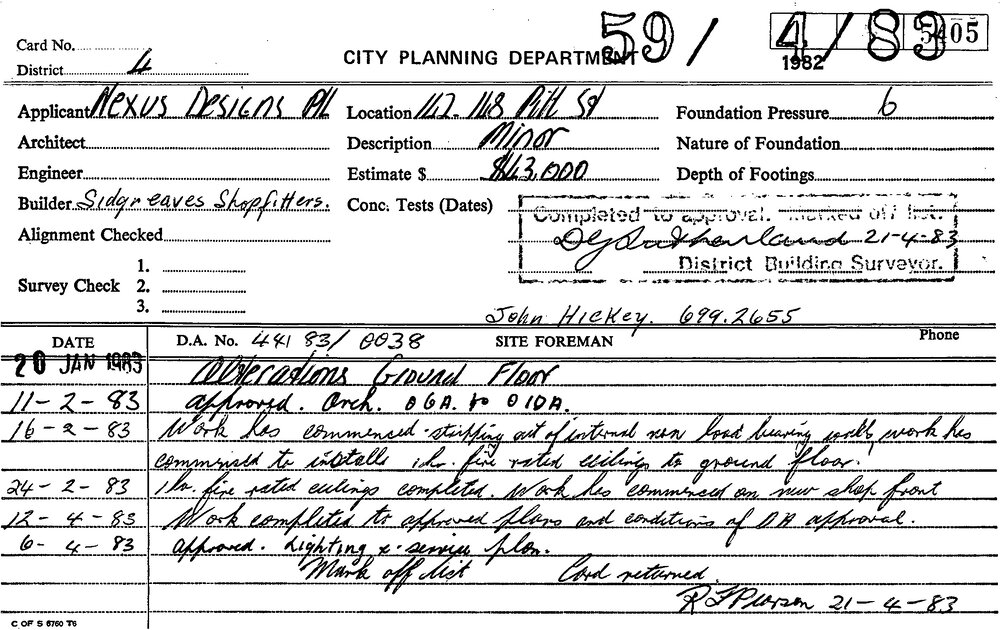 59/ 4/83
5405
1982
Card No.
District 4
CITY PLANNING DEPARTMENT
Applicant Nexus Designs P/L Location 142-148 Pitt St Foundation Pressure 6
Architect Description Minor Nature of Foundation
Engineer Estimate $ $43,000 Depth of Footings
Builder Sidgreaves Shopfitters. Conc. Tests (Dates)
Completed to approval. Marked off list.
Alignment Checked
DG Sutherland 21-4-83
District Building Surveyor.
Survey Check 1.
2.
3.
John Hickey. 699.2655
DATE D.A. No. 44183/0038 SITE FOREMAN Phone
20 JAN 1983 Alterations Ground Floor
11-2-83 approved. Arch. 06A. to 010A.
16-2-83 Work has commenced stripping out of internal non load bearing walls, work has
commensed to installs 1 hr. fire rated ceilings to ground floor.
24-2-83 1 hr. fire rated ceilings completed. Work has commenced on new shop front
12-4-83 Work completed to approved plans and conditions of DA approval.
6-4-83 approved. Lighting & service plan.
Mark off list Card returned.
R F Pearson 21-4-83
C OF S 6760 T6